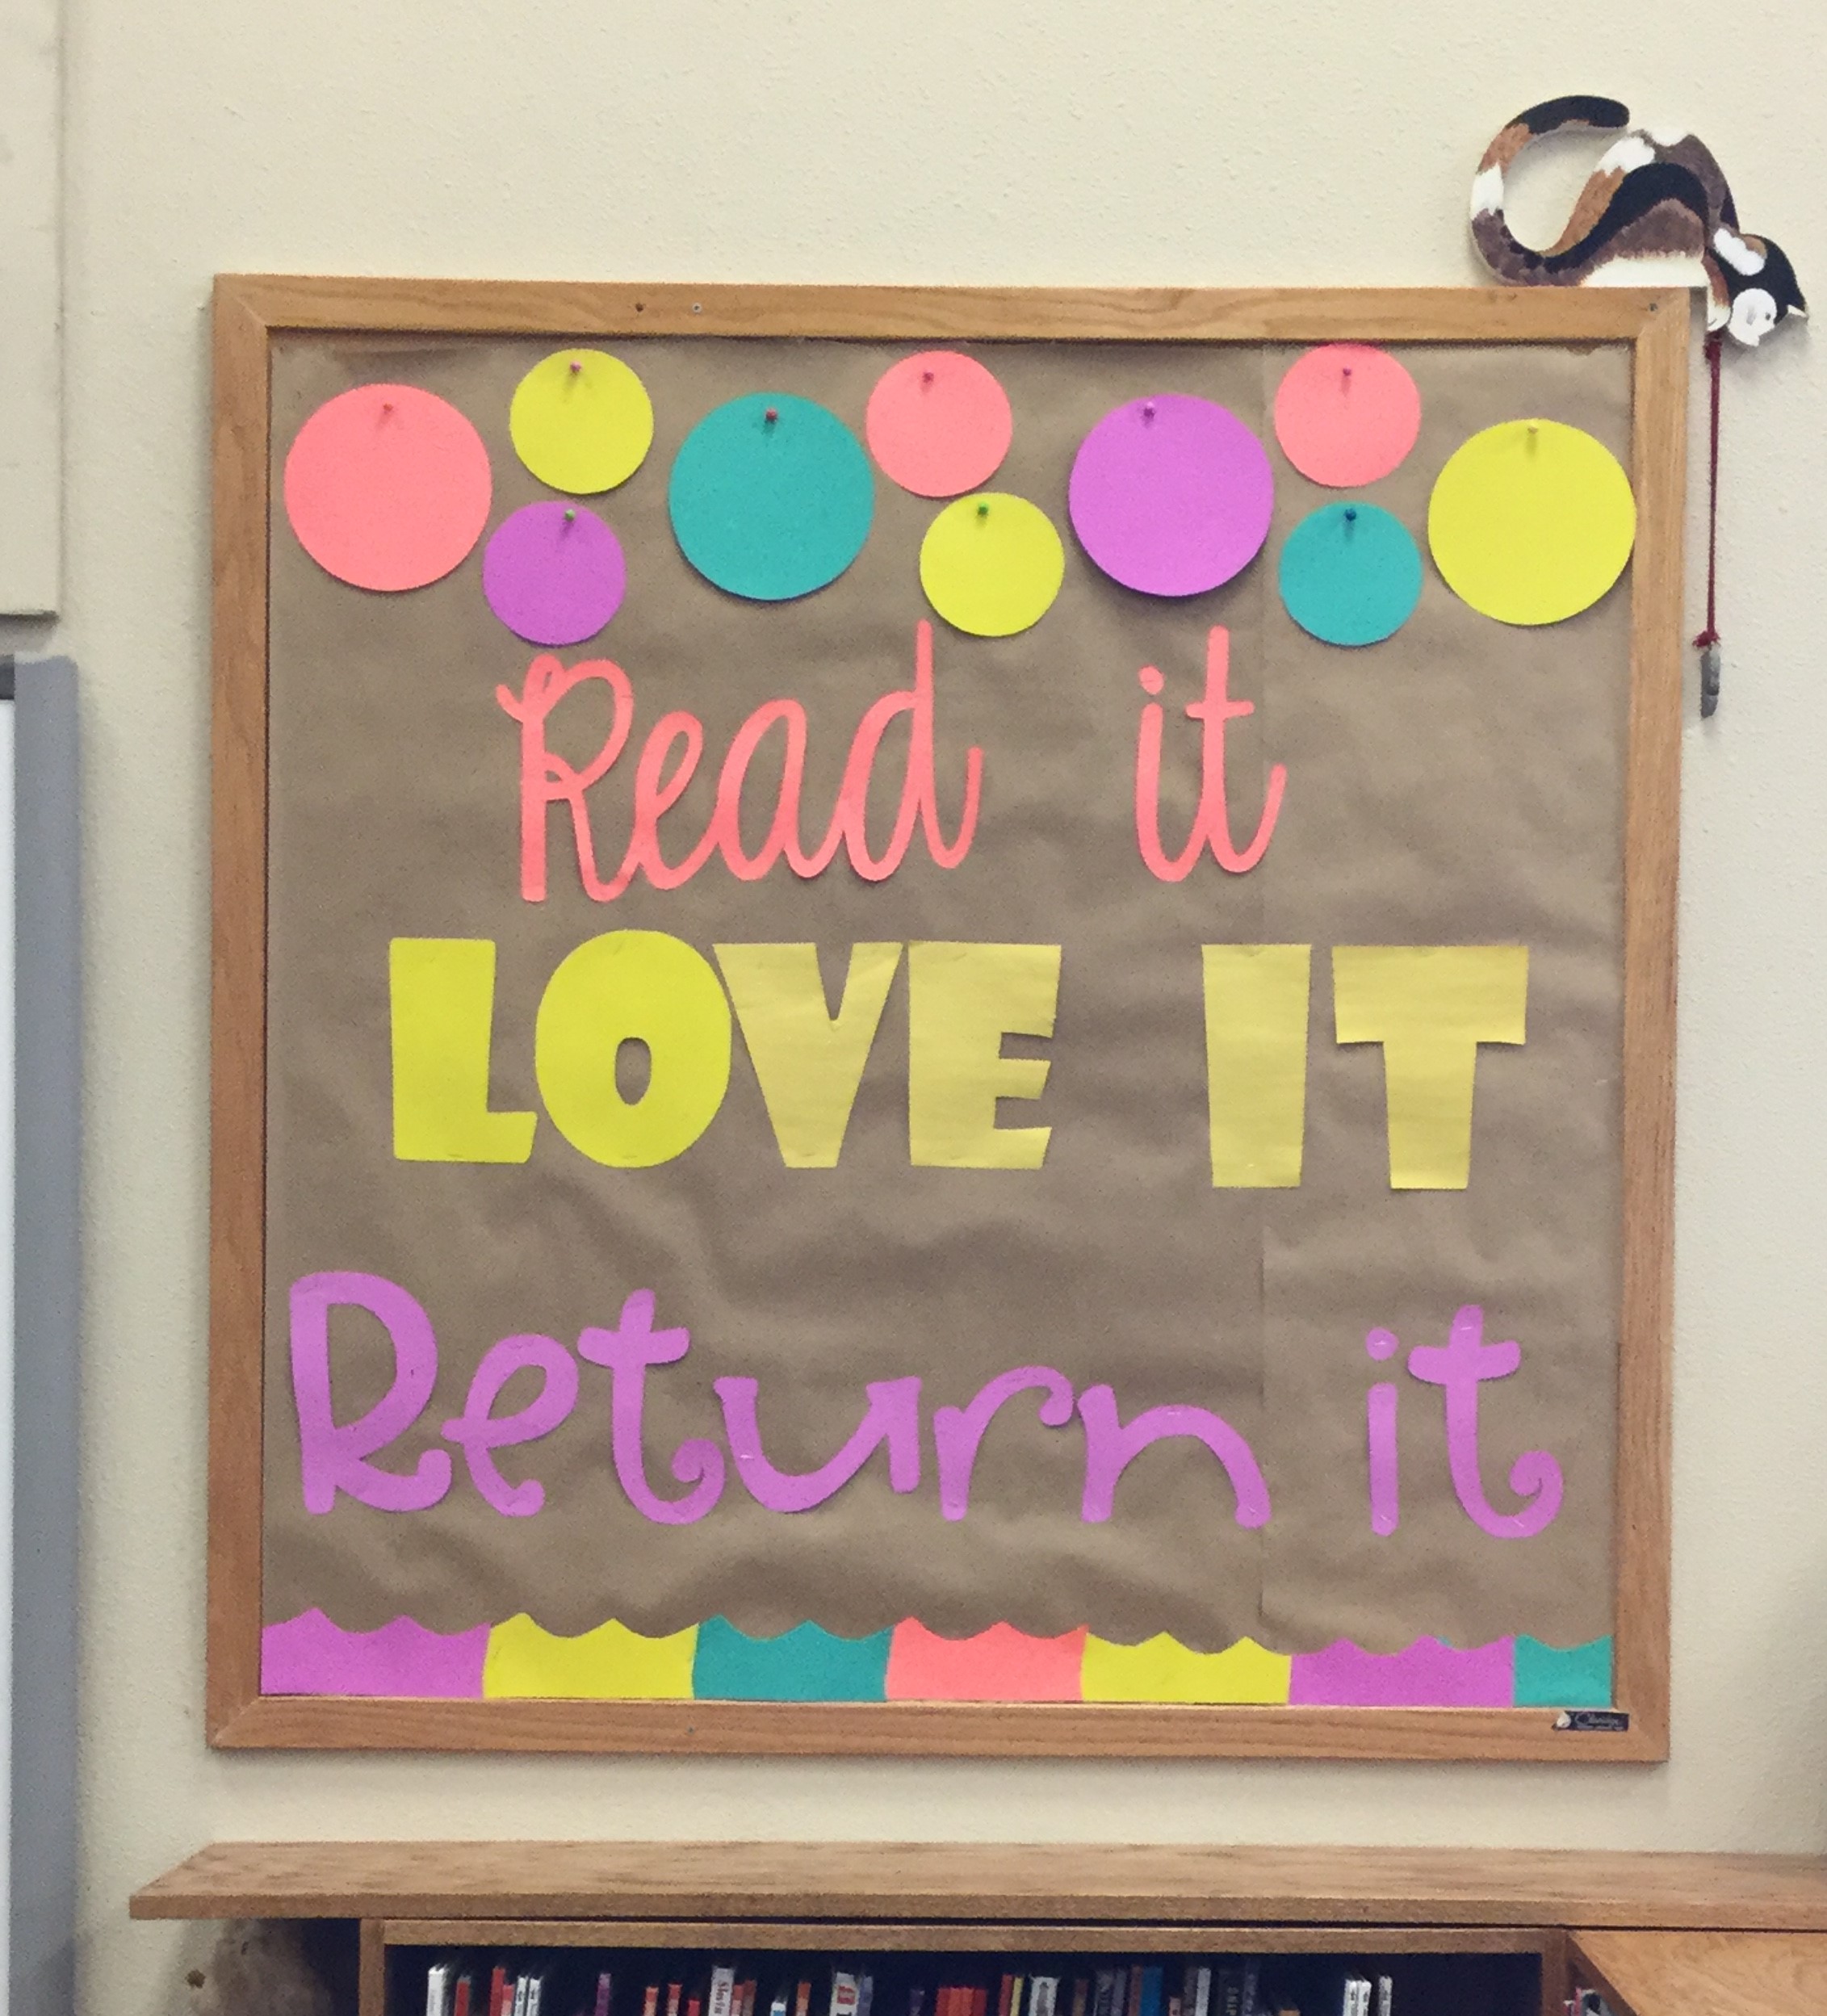 Read it
LOVE IT
Return it